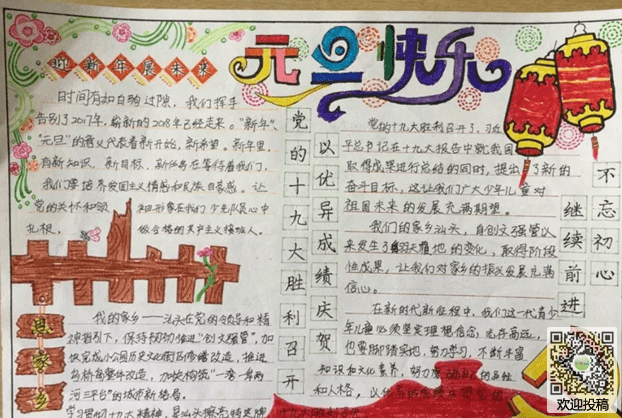 元旦快乐
迎新年展未来
时间有如白驹过隙，我们挥手
告别了2017年，崭新的2018年已经走来。"新年"、
"元旦"的意义代表着新开始，新希望。新年里，
有新知识、新目标、新任务在等待着我们，
我们要培养爱国主义情感和民族自尊感。让
党的关怀和领
扎根，
在我们少先队员心中
做合格的共产主义接班人。
我的家乡——汕头在党的领导和精
神指引下，保持
加快构筑"一湾两
河三平台"的城市新格局。
党的十九大胜利召开
以优异成绩庆贺
党的十九大胜利召开了，习近
平总书记在十九大报告中就我国
取得成果进行总结的同时，提出了新的
奋斗目标，这让我们广大少年儿童对
祖国未来的发展充满期望。
我们的家乡汕头，自创文强管以
来发生了翻天覆地的变化、取得阶段
性成果，让我们对家乡的振兴发展充满
信心。
在新时代新征程中，我们这一代青少
年儿童必须坚定理想信念，志存高远，
也要脚踏实地，努力学习，不断丰富
知识和文化素养，努力
和人格，以优秀的
不忘初心
继续前进
欢迎投稿